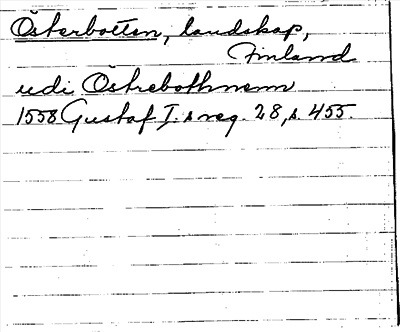 Österbotten, landskap,
Finland
udi Östrebothnenn
1558 Gustaf I.s reg. 28, s. 455.